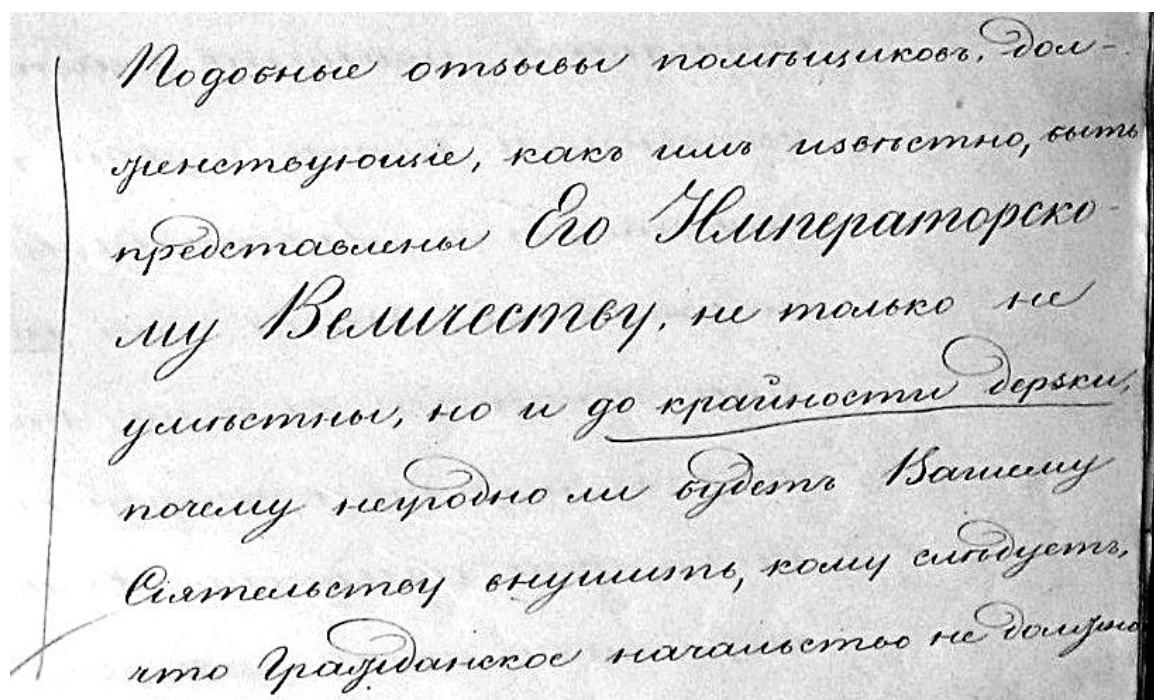 Подобные отзывы помѣщиковъ, дол-
женствующіе, какъ имъ извѣстно, быть
представлены Его Императорско-
му Величеству, не только не
умѣстны, но и до крайности дерзки,
почему неугодно ли будетъ Вашему
Сіятельству внушить, кому слѣдуетъ,
что Гражданское начальство не должно